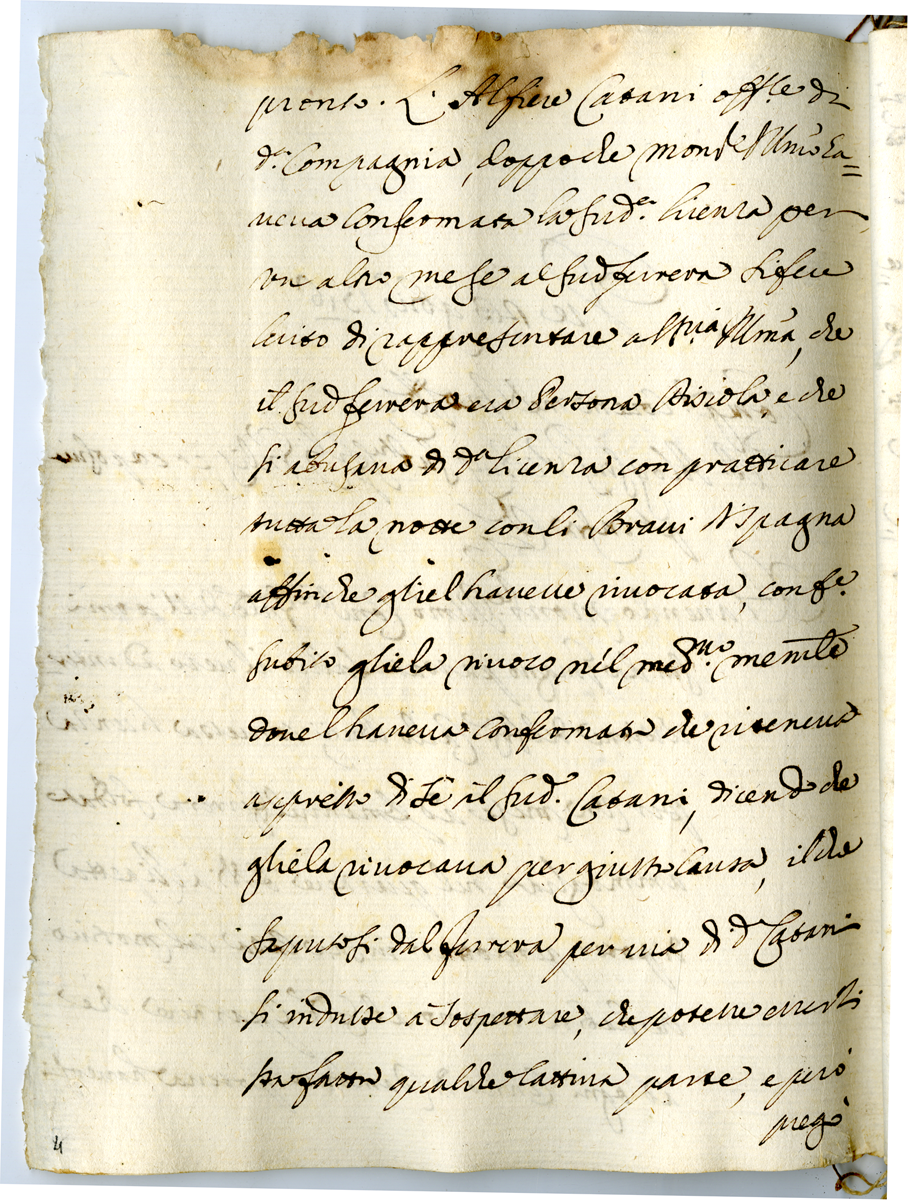 pronto. L'Alfiere Catani off.le di
d.a Compagnia, doppo che mons.e Ill.mo ha=
veva confermata la Sud.a licenza per
un altro mese al Sud. Ferrera si fece
lecito di rappresentare a V.S. Ill.ma, che
il Sud. Ferrera era Persona Rissiola, e che
si abusava di d.a licenza con pratticare
tutta la notte con li Bravi di Spagna
affinche gliel havesse rivocata, conf.e
subito gliela rivoco nel med.mo memle
dove l haveva confermata che riteneva
appresso di se il Sud.o Catani, dicendo che
gliela rivocava per giusta causa, il che
saputosi dal Ferrera per via di d.o Catani
si indusse a sospettare, che potesse esserli
sta fatta qualche cattiva parte, e però
pregò
4